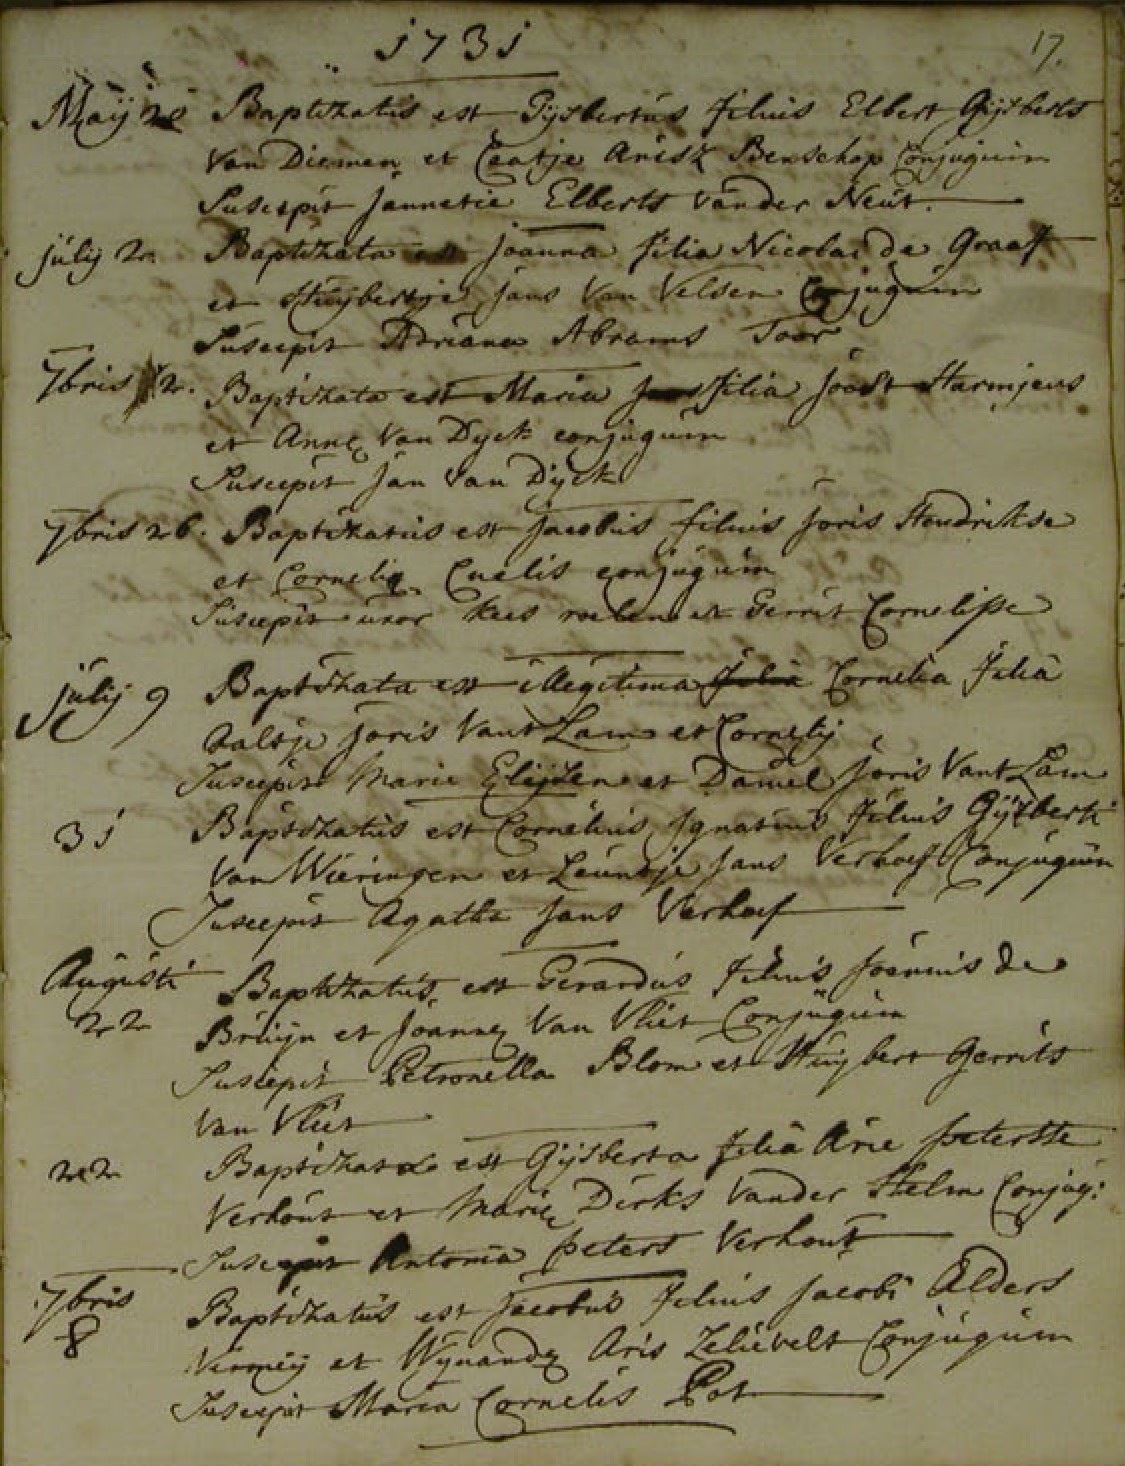 1731
17.
Maij 28 Baptizatus est Gijsbertus filius Elbert Gijsberts
Van Diemen et Aris Benschop Conjugum
Suscepit Jannetie Elberts Vander Neut.
julij 2. Baptizata est joanna filia Nicolai de Graaf
et Huijbertje Jans Van Velsen Conjugum
Suscepit Adriana Abrams Toor
7bris 12. Baptizata est Maria filia joost Harmjens
et Annæ Van Dyck conjugum
Suscepit Jan Van Dijck
7bris 26. Baptizatus est jacobus filius joris Hendrikse
et Corneliæ Cnelis conjugum
Suscepit uxor Kees roelen et Gerrit Cornelisse
julij 9 Baptizata est illegitima filia Cornelia filia
Aaltje joris Vant Lam et Cornelij
Suscepit Marie Elijzen et Daniel joris Vant Lam
31 Baptizatus est Cornelius Ignatius filius Gijsberti
Van Wieringen et Leuntje Jans Verhoef Conjugum
Suscepit Agatha Jans Verhoef
Augusti Baptizatus est Gerardus filius joannis de
22 Bruijn et joannæ Van Vliet Conjugum
Suscepit Petronella Blom et Huijbert Gerrits
Van Vliet
22 Baptizata est Gijsberta filia Arie peterste
Verhout et Mariæ Dirks Vander Helm Conjug:
Suscepit Antonia peters Verhout
7bris Baptizatus est jacobus filius jacobi Alders
8 Vermeij et Wynandæ Aris Zelievelt Conjugum
Suscepit Maria Cornelis Pot